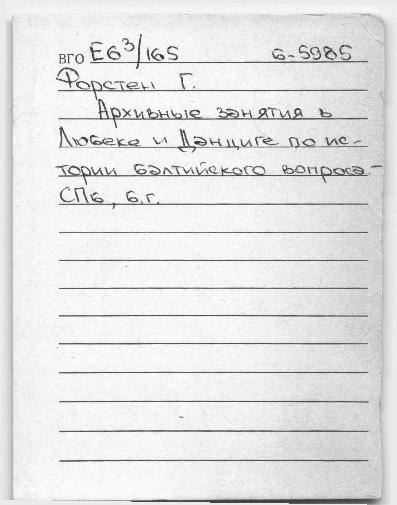 ВГО Е6³/165 б-5985
Форстен Г.
Архивные занятия в
Любеке и Данциге по ис-
тории балтийского вопроса.-
СПб, б.г.